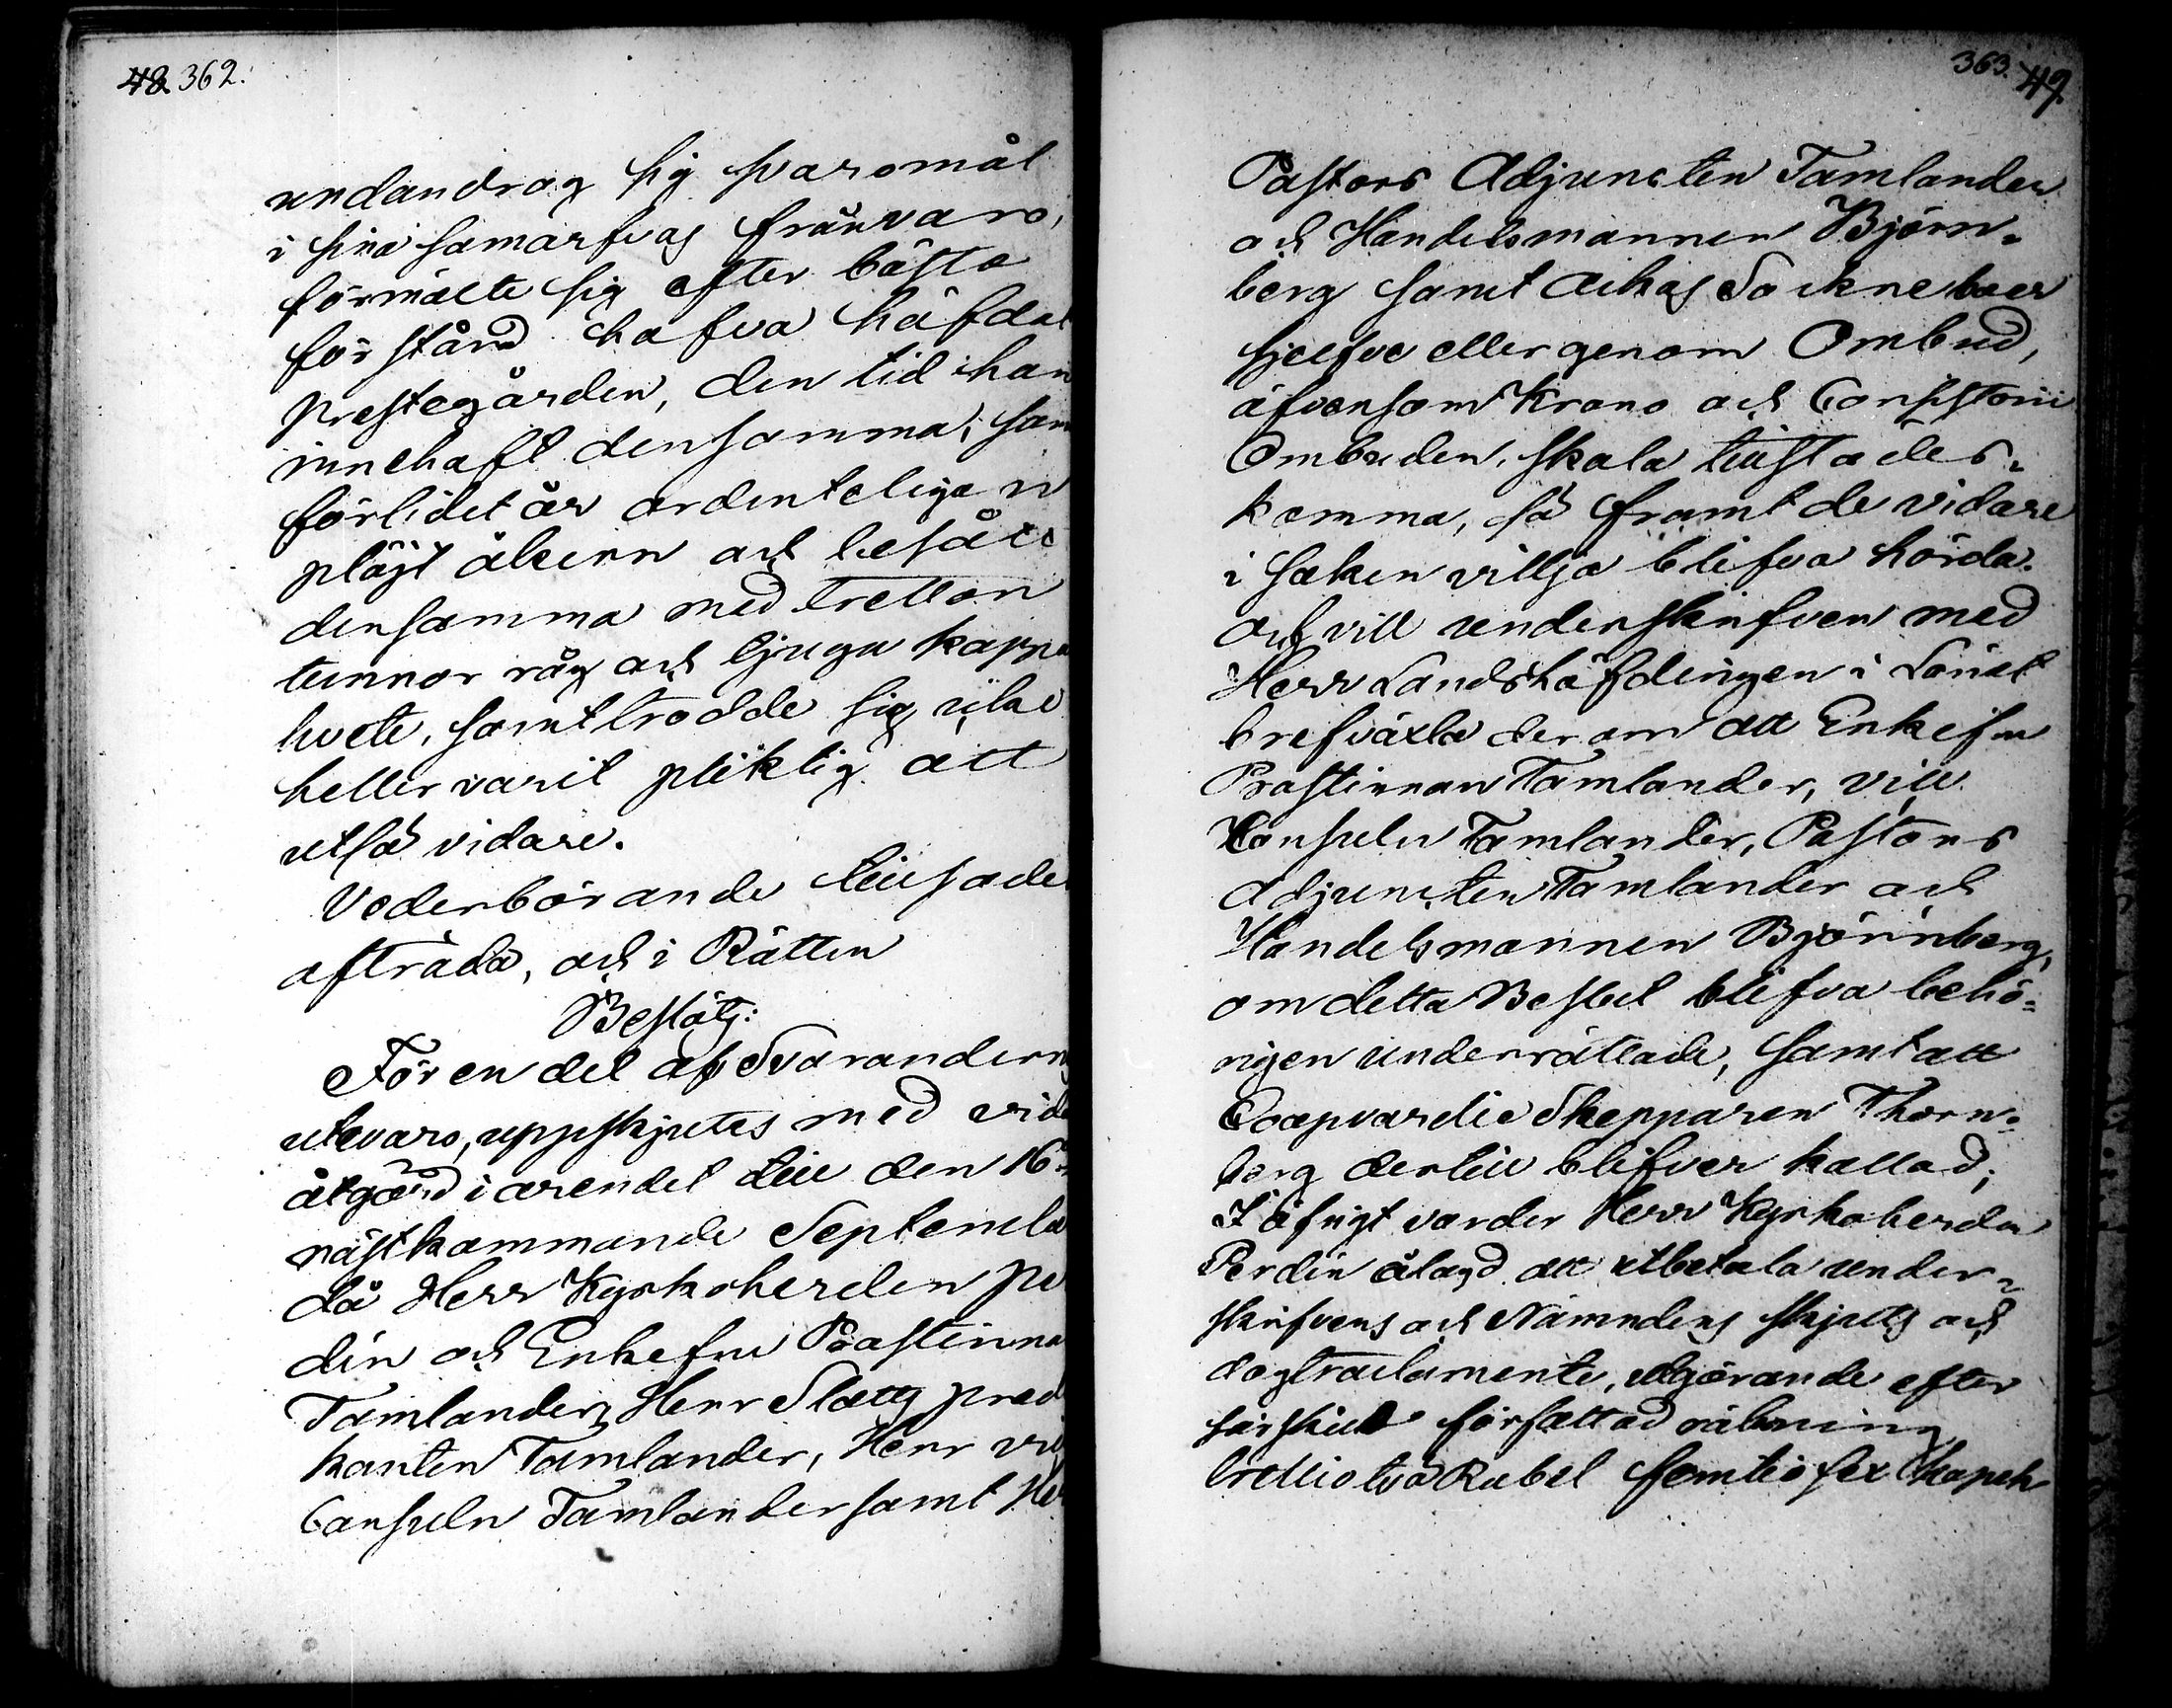 48 362.
undandrog sig svaromål
i sina samarfvas frånvaro,
förmälte sig efter bästa
förstånd hafva häfdat
prestegården, den tid han
innehaft densamma, sam
förlidet år ordenteligen
plöjt åkern och besått
densamma med tretton
tunnor råg och tjugu kappa
hvete, samt trodde sig icke
heller varit pliktig att
utså vidare.
Vederbörande tillsades
afträda, och i Rätten
Beslöts:
För en del af Svarandern
utevaro, uppskjutes med vida
åtgärd i ärendet till den 16:
nästkommande Septembe
då Herr Kyrkoherden Pe
din och Enkefru Prostinna
Tamlander, Herr Slotts pred
kanten Tamlander, Herr vi
Consuln Tamlander samt He
363. 49.
Pastors Adjuncten Tamlander
och Handelsmannen Björn-
berg samt Ackas Sockneboer
sjelfve eller genom Ombud,
äfvensom Krono och Consistorii
Ombuden, skola tillstädes-
komma, så framt de vidare
i saken vilja blifva hörda.
och vill underskrifven med
Herr Landshöfdingen i Länet
brefväxla derom att Enkefru
Prostinnan Tamlander, vice
Konsuln Tamlander, Pastors
Adjuncten Tamlander och
Handelsmannen Björnberg,
om detta Beslut blifva behö-
rigen underrättade, samt att
Coopvardie Skepparen Thorn-
berg dertill blifver kallad;
I öfrigt varder Herr Kyrkoherden
Perdin ålagd att utbetala under-
skrifvens och Nämndens skjuts och
dagtractamente, utgörande efter
särskild författad räkning
trettiotvå Rubel femtio sex Kapek